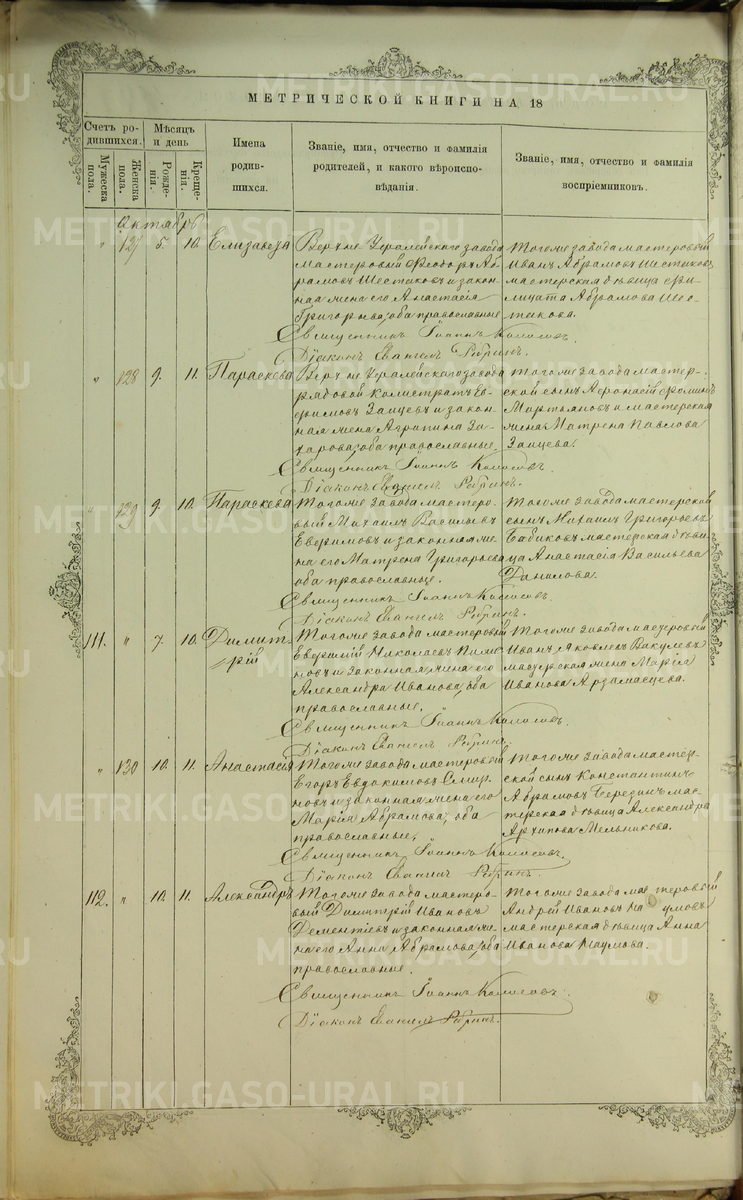 МЕТРИЧЕСКОЙ КНИГИ НА 18
Счетъ ро-
дившихся.
Мужеска
пола.
Женска
пола.
Мѣсяцъ
и день
Рожде-
нія.
Креще-
нія.
Имена
родив-
шихся.
Званіе, имя, отчество и фамилія
родителей, и какого вѣроиспо-
вѣданія.
Званіе, имя, отчество и фамилія
воспріемниковъ.
Октябрь
" 127 5. 10. Елизавета
Верхне Уфалейскаго завода
мастеровый Ѳеодоръ Аб-
рамовъ Шестаковъ и закон-
ная жена его Анастасія
Григорьева, оба православные
Священникъ Іоаннъ
Діаконъ Евангелъ
Тогоже завода мастеровый
Иванъ Абрамовъ Шестаковъ,
мастерская дѣвица Фи-
лицата Абрамова Шес-
такова.
" 128 9. 11. Параскева
Верхне Уфалейскаго завода
рядовой Калистратъ Ев-
фимовъ Заицевъ и закон-
ная жена Агрипина За-
харова, оба православные.
Священникъ Іоаннъ
Діаконъ Евангелъ
Тогоже завода мастер-
ской сынъ Афонасій Фоминъ
Мартьяновъ и мастерская
жена Матрена Павлова
Заицева.
" 129 9. 10. Параскева
Тогоже завода масте-
ровый Михаилъ Васильевъ
Евфимовъ и законная же-
на его Матрена Григорьева
оба православные.
Священникъ Іоаннъ
Діаконъ Евангелъ
Тогоже завода мастерской
сынъ Михаилъ Григорьевъ
Бабиковъ мастерская дѣви-
ца Анастасія Васильева
Данилова.
111. " 7. 10. Димит-
рій
Тогоже завода мастеровый
Николаевъ
и законная жена его
Александра Иванова, оба
православные.
Священникъ Іоаннъ
Діаконъ Евангелъ
Тогоже завода мастеровый
Иванъ Яковлевъ Вакулевъ
мастерская жена Марія
Иванова Арзамасцева.
" 130 10. 11. Анастасія
Тогоже завода мастеровый
Егоръ Евдокимовъ Смир-
новъ и законная жена его
Марія Абрамова, оба
православные.
Священникъ Іоаннъ
Діаконъ Евангелъ
Тогоже завода мастер-
ской сынъ Константинъ
Абрамовъ Березинъ мас-
терская дѣвица Александра
Архипова Мельникова.
112. " 10. 11. Александръ
Тогоже завода мастеро-
вый Димитрій Ивановъ
Дементіевъ и законная же-
на его Анна Абрамова, оба
православные.
Священникъ Іоаннъ
Діаконъ Евангелъ
Тогоже завода мастеровый
Андрей Ивановъ Наумовъ
мастерская дѣвица Анна
Иванова Наумова.
METRIKI.GASO-URAL.RU